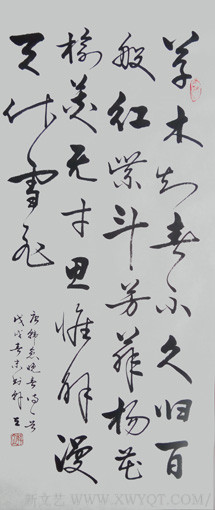 草木知春不久归百
般红紫斗芳菲杨花
榆荚无才思惟解漫
天作雪飞
唐韩愈晚春
戊戌春末书
新文艺 WWW.XWYQT.COM/